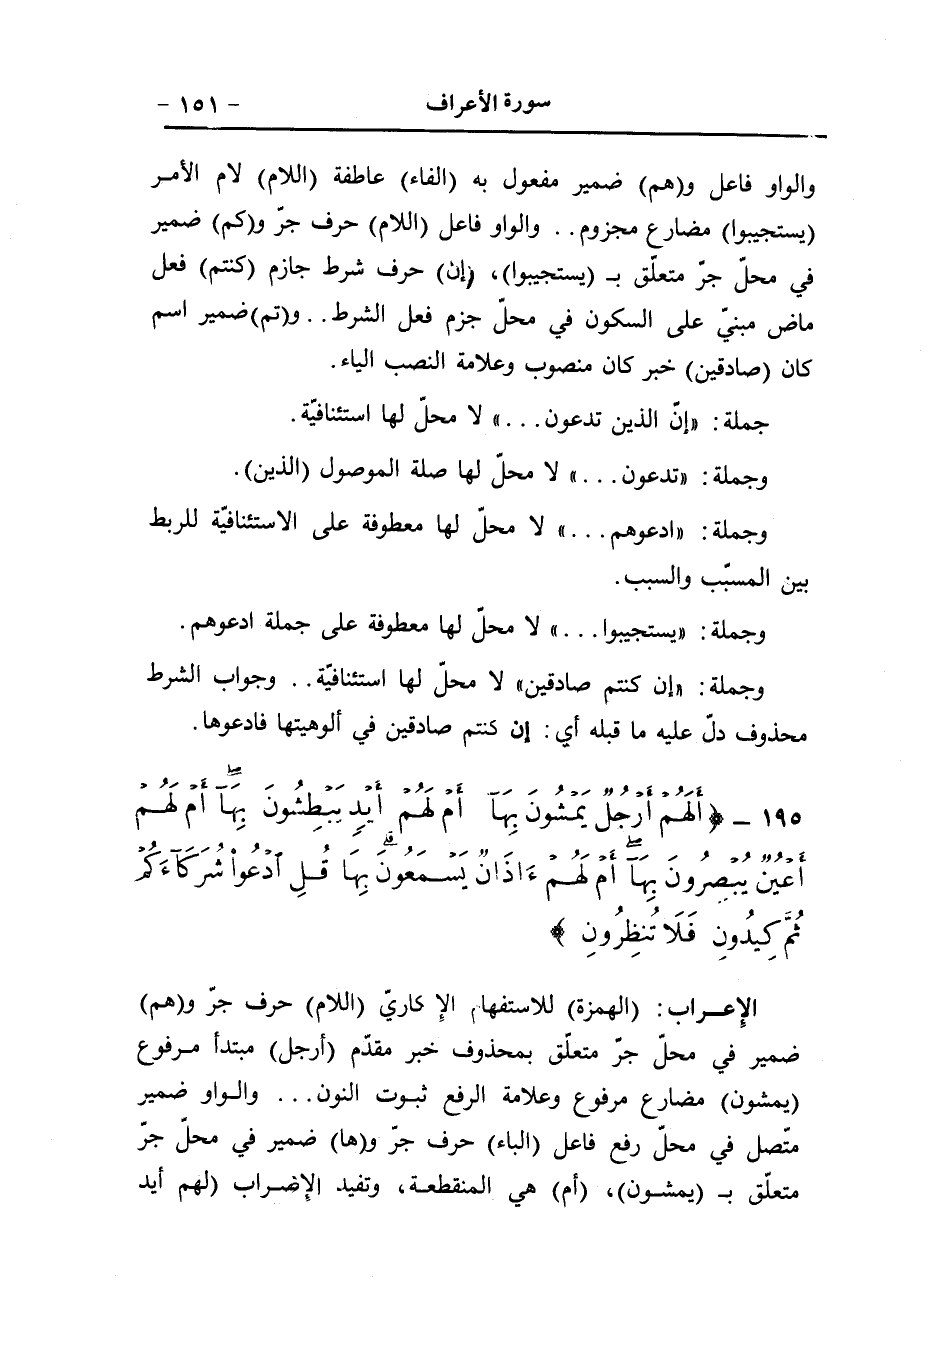 سورة الأعراف - ١٥١ -
والواو فاعل و(هم) ضمير مفعول به (الفاء) عاطفة (اللام) لام الأمـر
(يستجيبوا) مضارع مجزوم.. والواو فاعل (اللام) حرف جرّ و(كم) ضمير
في محلّ جرّ متعلّق بـ (يستجيبوا)، (إن) حرف شرط جازم (كنتم) فعل
ماض مبنيّ على السكون في محلّ جزم فعل الشرط.. و(تم) ضمير اسم
كان (صادقين) خبر كان منصوب وعلامة النصب الياء.
جملة: «إنّ الذين تدعون...» لا محلّ لها استئنافيّة.
وجملة: «تدعون...» لا محلّ لها صلة الموصول (الذين).
وجملة: «ادعوهم...» لا محلّ لها معطوفة على الاستئنافيّة للربط
بين المسبّب والسبب.
وجملة: «يستجيبوا...» لا محلّ لها معطوفة على جملة ادعوهم.
وجملة: «إن كنتم صادقين» لا محلّ لها استئنافيّة.. وجواب الشرط
محذوف دلّ عليه ما قبله أي: إن كنتم صادقين في ألوهيتها فادعوها.
١٩٥ - ﴿ أَلَهُمْ أَرْجُلٌ يَمْشُونَ بِهَآ أَمْ لَهُمْ أَيْدٍ يَبْطِشُونَ بِهَآ أَمْ لَهُمْ
أَعْيُنٌ يُبْصِرُونَ بِهَآ أَمْ لَهُمْ ءَاذَانٌ يَسْمَعُونَ بِهَا قُلِ ٱدْعُوا۟ شُرَكَآءَكُمْ
ثُمَّ كِيدُونِ فَلَا تُنظِرُونِ ﴾
الإعـراب: (الهمزة) للاستفهام الإ كاريّ (اللام) حرف جرّ و(هم)
ضمير في محلّ جرّ متعلّق بمحذوف خبر مقدّم (أرجل) مبتدأ مـرفوع
(يمشون) مضارع مرفوع وعلامة الرفع ثبـوت النون... والـواو ضمير
متّصل في محلّ رفع فاعل (الباء) حرف جرّ و(ها) ضمير في محلّ جرّ
متعلّق بـ (يمشـون)، (أم) هي المنقطعـة، وتفيد الإضـراب (لهم أيد